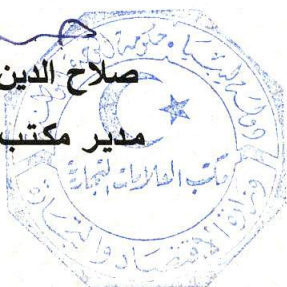 صلاح الدين
مدير مكتب
دولة ليبيا
مكتب العلامات التجارية
وزارة الاقتصاد والتجارة